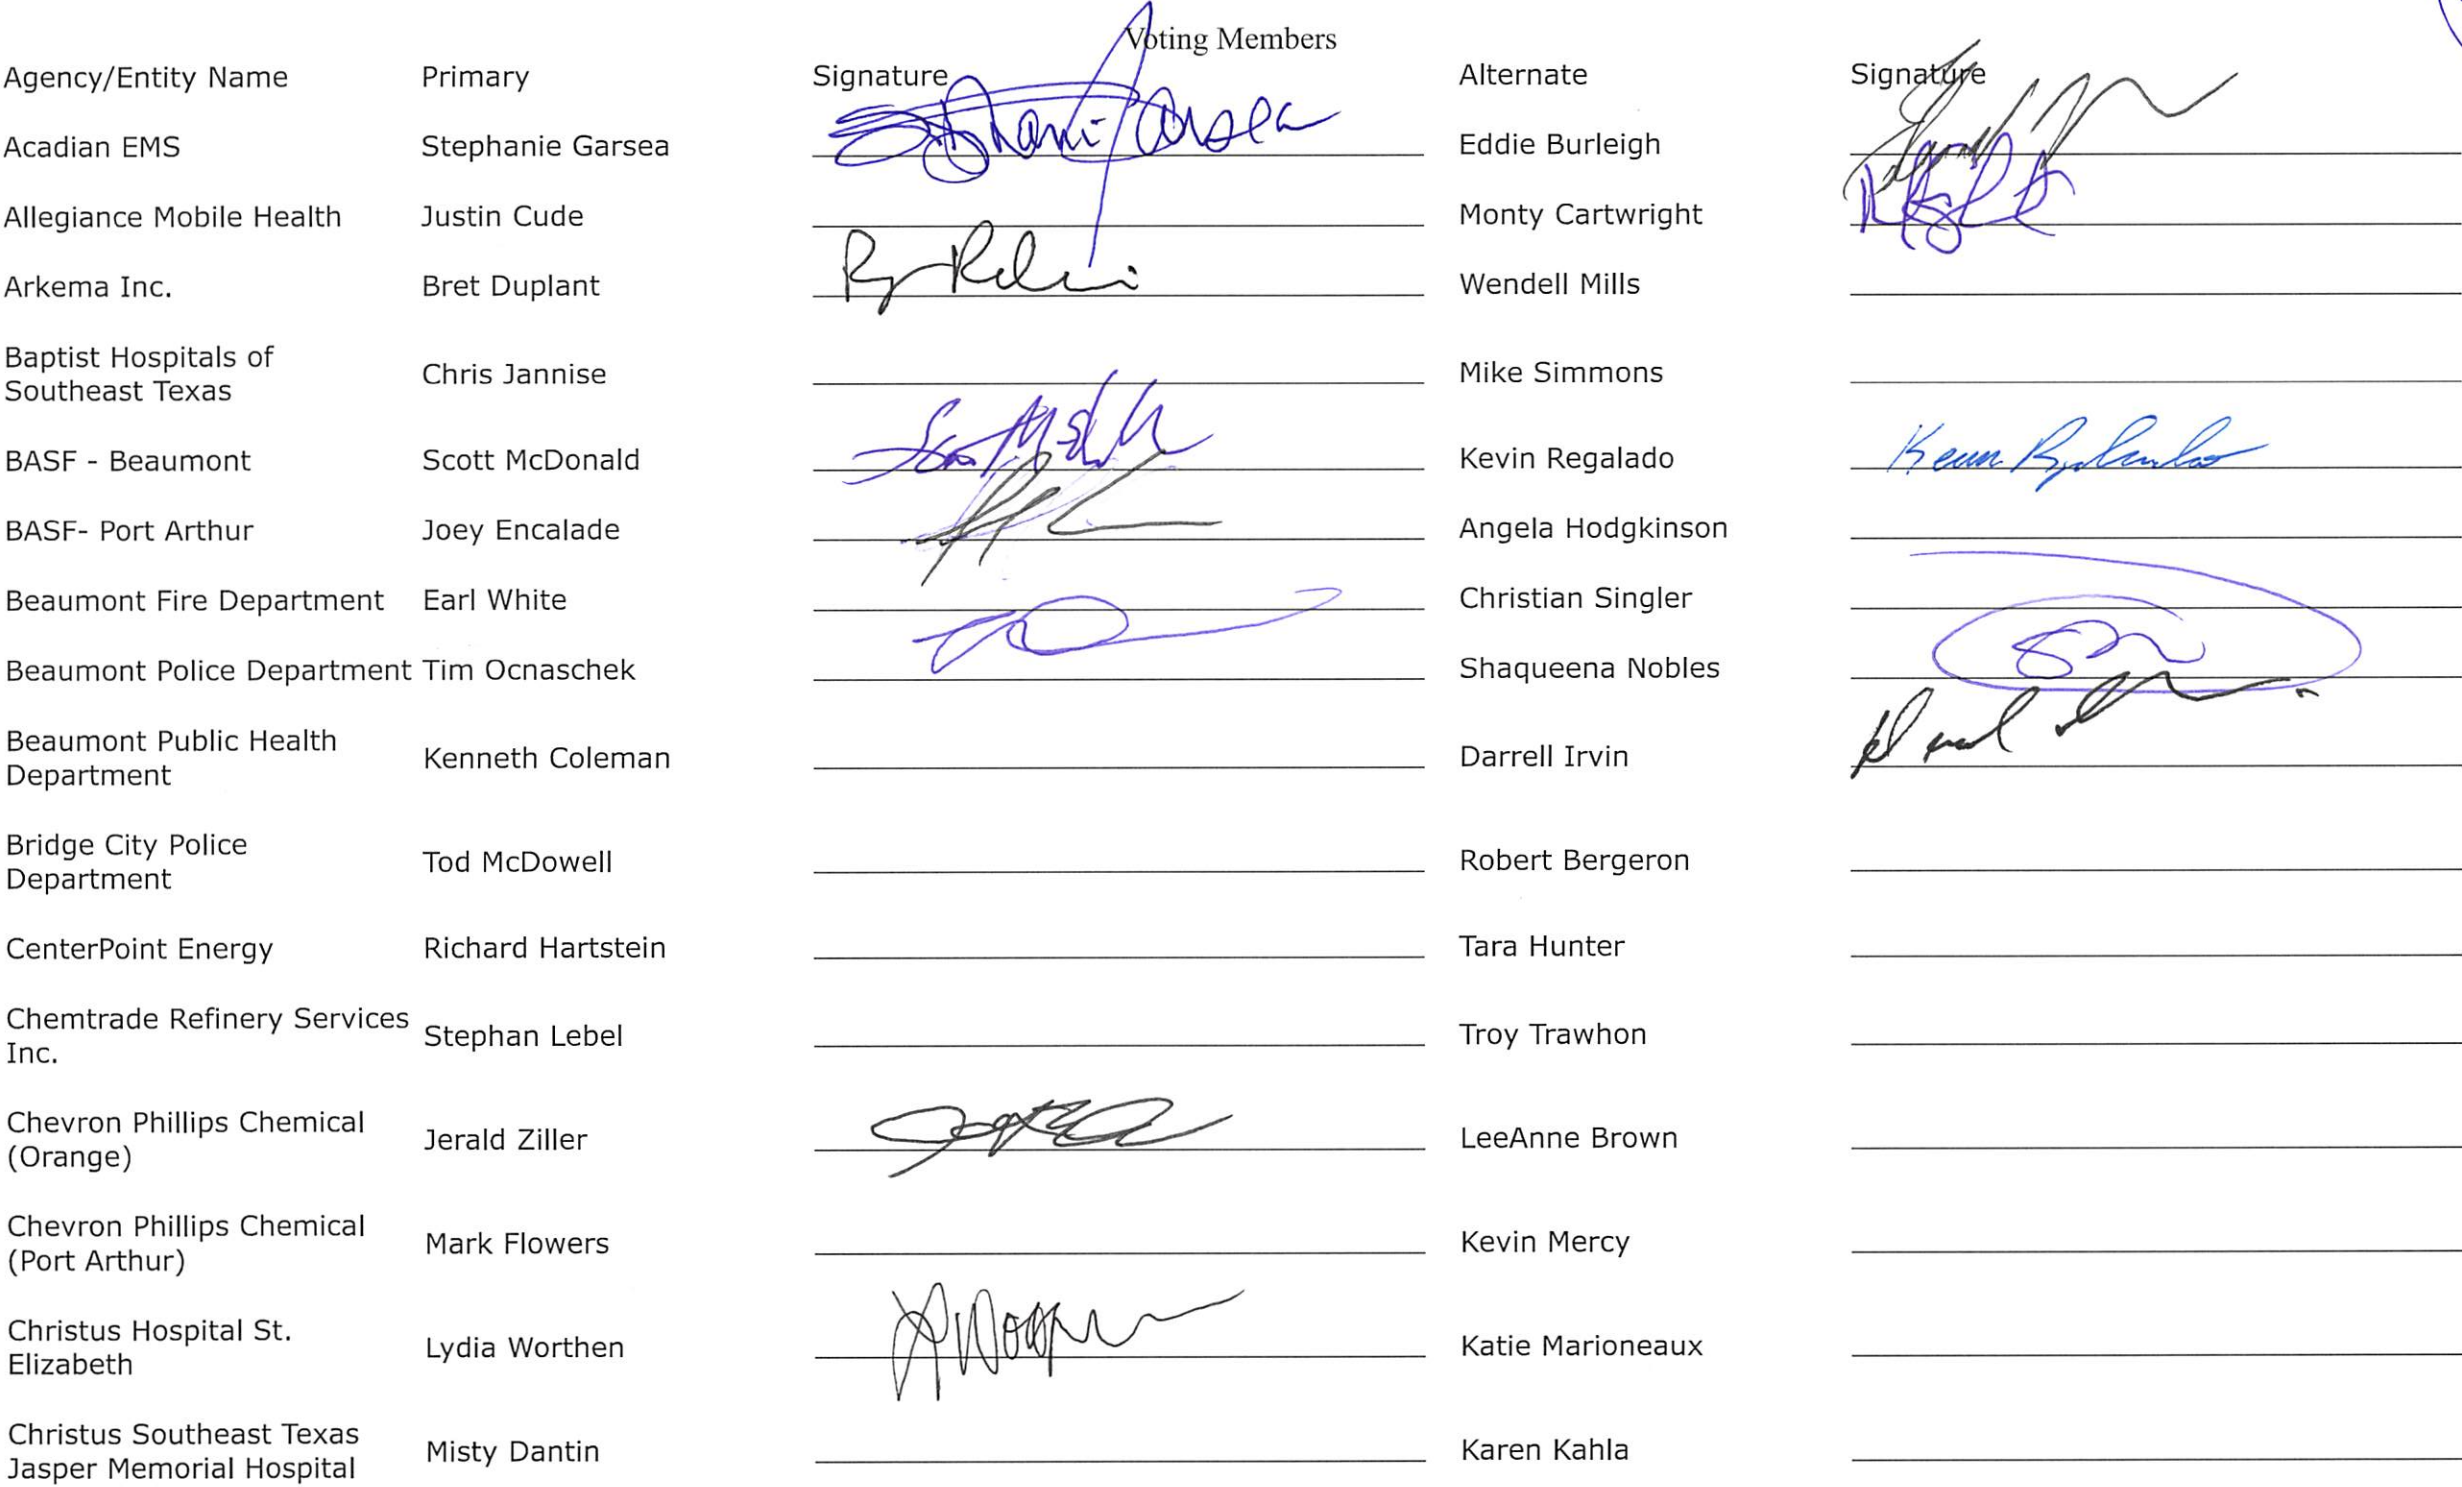 Voting Members
Agency/Entity Name Primary Signature Alternate Signature
Acadian EMS Stephanie Garsea Stephanie Garsea Eddie Burleigh
Allegiance Mobile Health Justin Cude Monty Cartwright
Arkema Inc. Bret Duplant Wendell Mills
Baptist Hospitals of
Southeast Texas Chris Jannise Mike Simmons
BASF - Beaumont Scott McDonald Kevin Regalado Kevin Regalado
BASF- Port Arthur Joey Encalade Angela Hodgkinson
Beaumont Fire Department Earl White Christian Singler
Beaumont Police Department Tim Ocnaschek Shaqueena Nobles
Beaumont Public Health
Department Kenneth Coleman Darrell Irvin
Bridge City Police
Department Tod McDowell Robert Bergeron
CenterPoint Energy Richard Hartstein Tara Hunter
Chemtrade Refinery Services
Inc. Stephan Lebel Troy Trawhon
Chevron Phillips Chemical
(Orange) Jerald Ziller LeeAnne Brown
Chevron Phillips Chemical
(Port Arthur) Mark Flowers Kevin Mercy
Christus Hospital St.
Elizabeth Lydia Worthen Katie Marioneaux
Christus Southeast Texas
Jasper Memorial Hospital Misty Dantin Karen Kahla